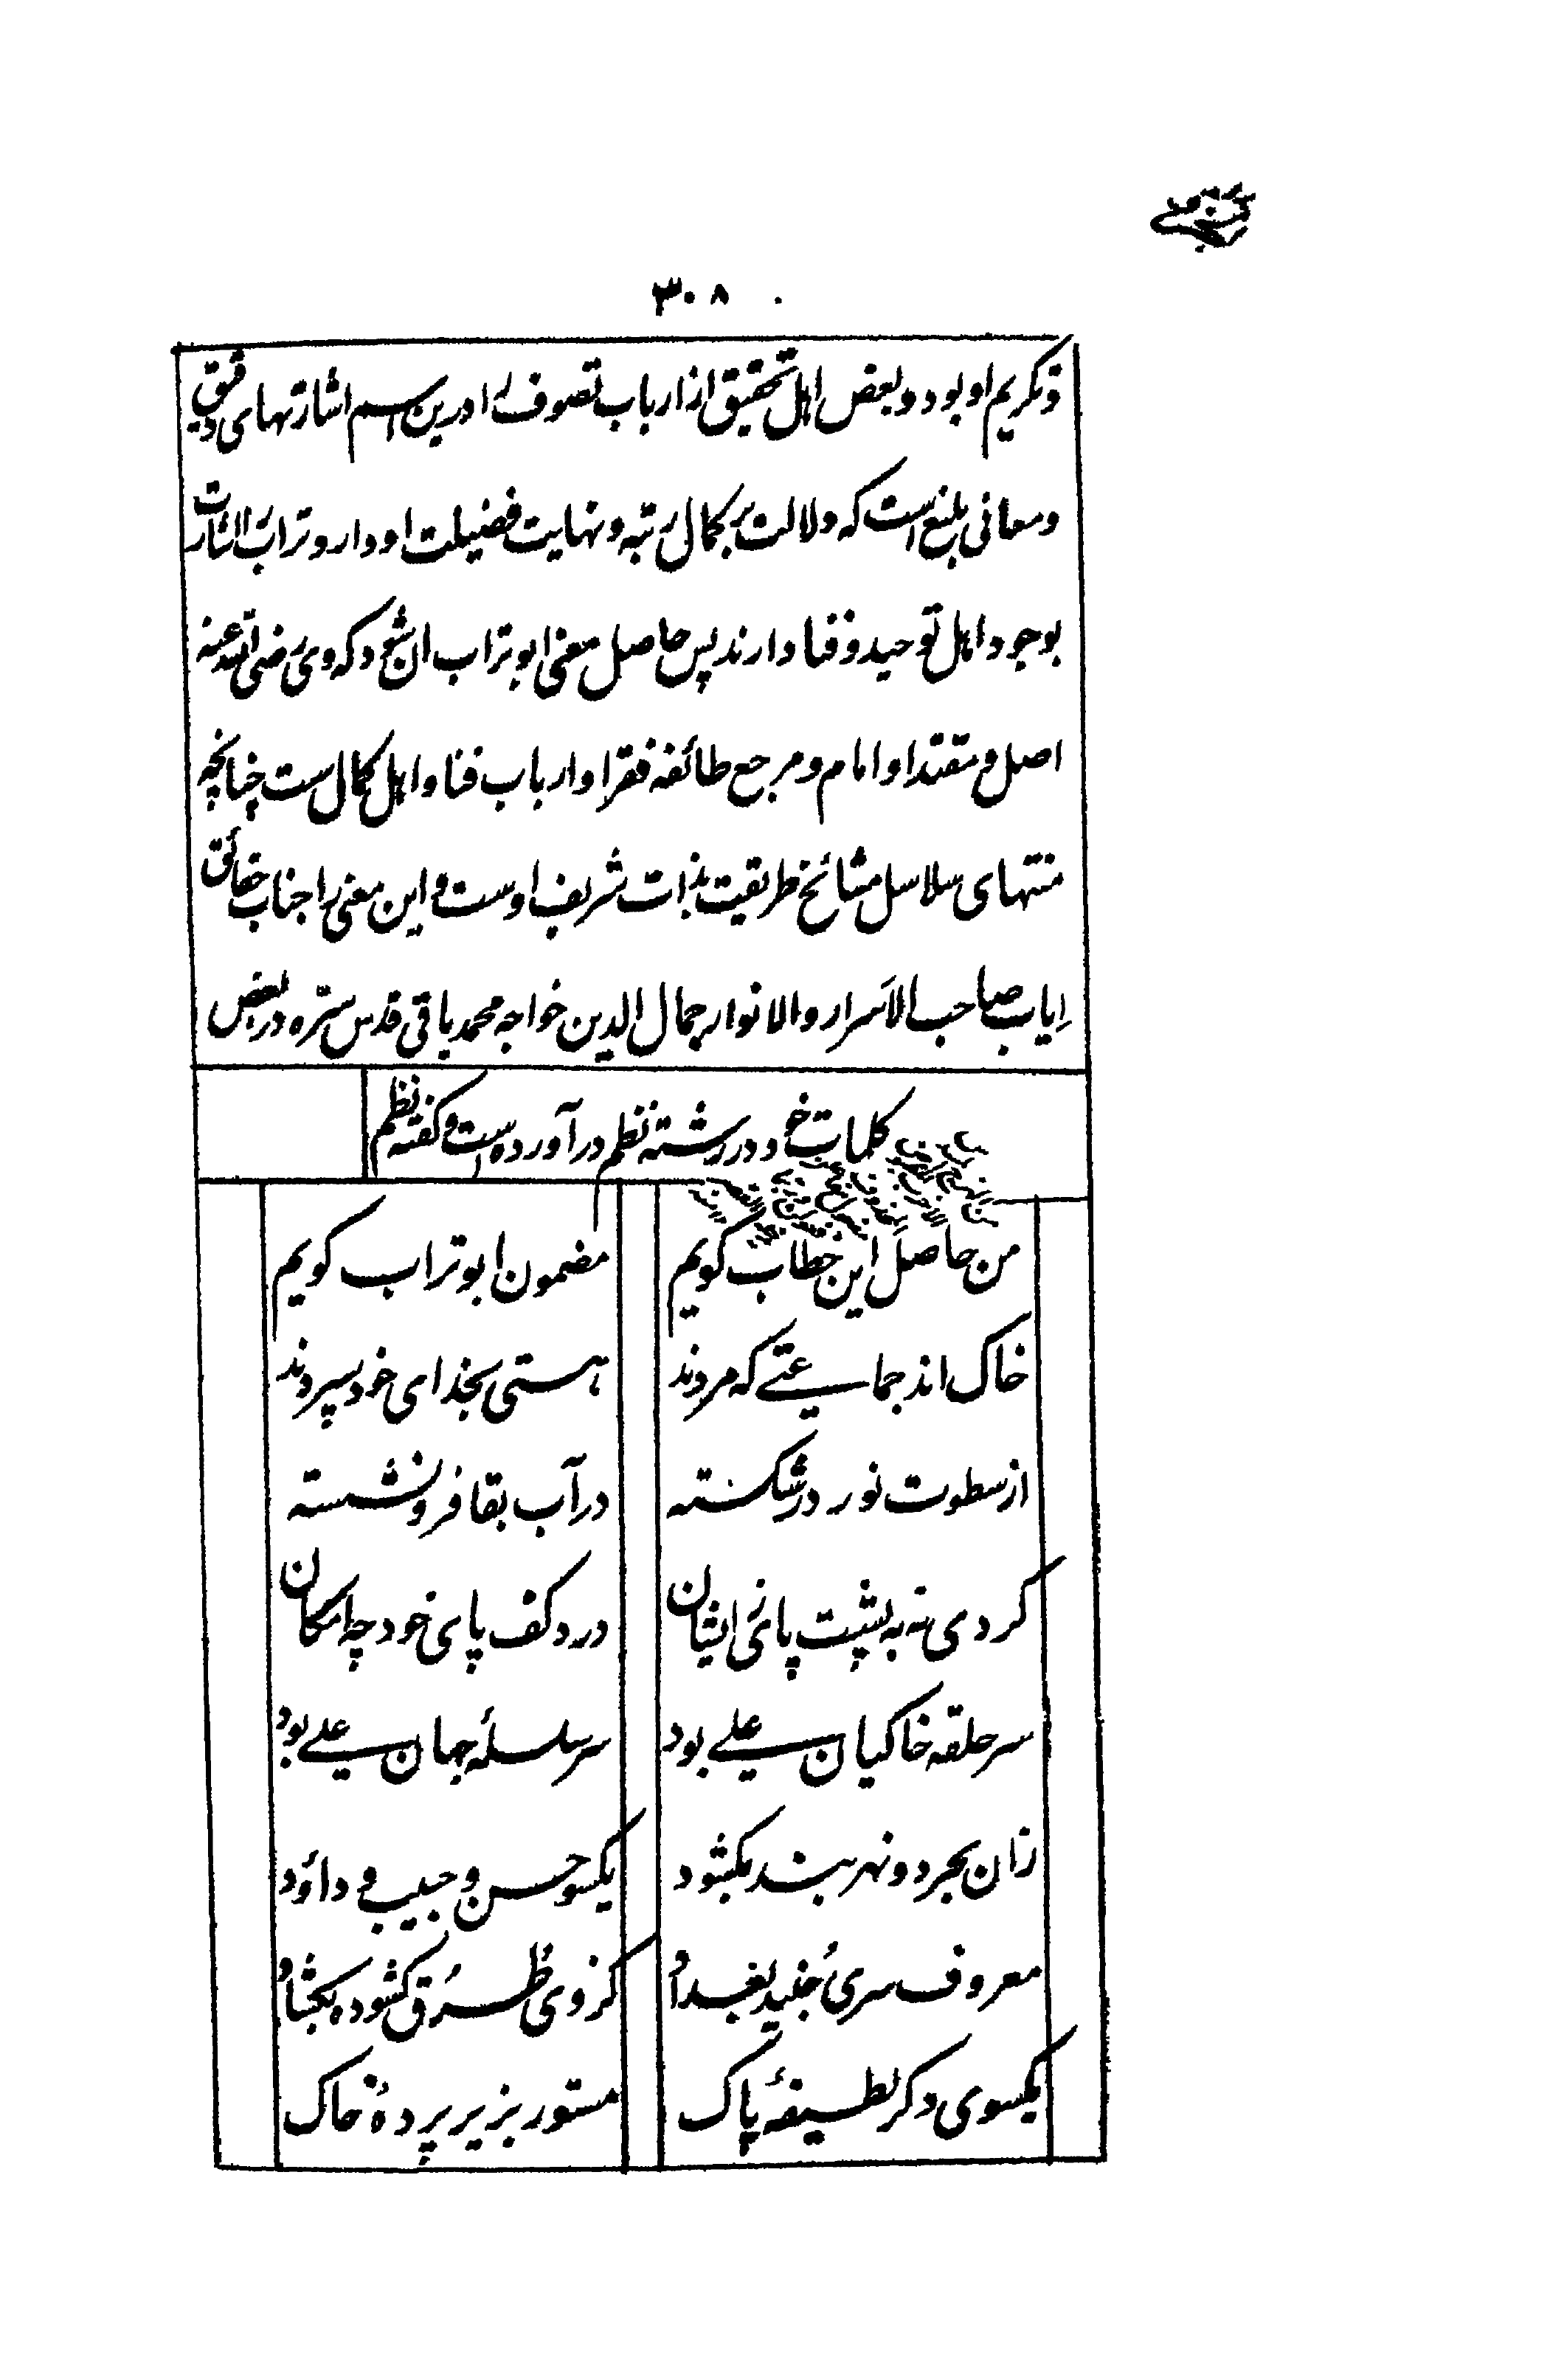 ۳۰۸
و تکریم او بود و بعض اهل تحقیق از ارباب تصوف را درین اسم اشارتهای دقیق
و معانی بلیغ است که دلالت بر کمال رتبه و نهایت فضیلت او دارد و تراب اشارت
بوجود اهل توحید و فنا دارند پس حاصل معنی ابو تراب ان شود که وی رضی الله عنه
اصل و مقتدا و امام و مرجع طائفه فقرا و ارباب فنا و اهل کمال ست چنانچه
منتهای سلاسل مشائخ طریقیت بذات شریف اوست و این معنی را جناب حقائق
ایاب صاحب الاسرار والانوار جمال الدین خواجه محمد باقی قدس سره در بعض
کلمات خود در رشته نظم در آورده است و گفته نظم
من حاصل این خطاب کویم مضمون ابو تراب کویم
خاک اند جماعتے که مردند هستی بخدای خود سپردند
از سطوت نور در شکسته در آب بقا فرو نشسته
کردی نه به پشت پای ایشان درد کف پای خود چه امکان
سر حلقه خاکیان علے بود سر سلسلهٔ جهان علے بود
زان بحر دو نهر بند بکشود یکسو حسن و حبیب و داؤد
معروف سری جنید بغداد کز وی طرق کشوده بکشاد
یکسوی دکر لطیفهٔ پاک مستور بزیر پردهٔ خاک